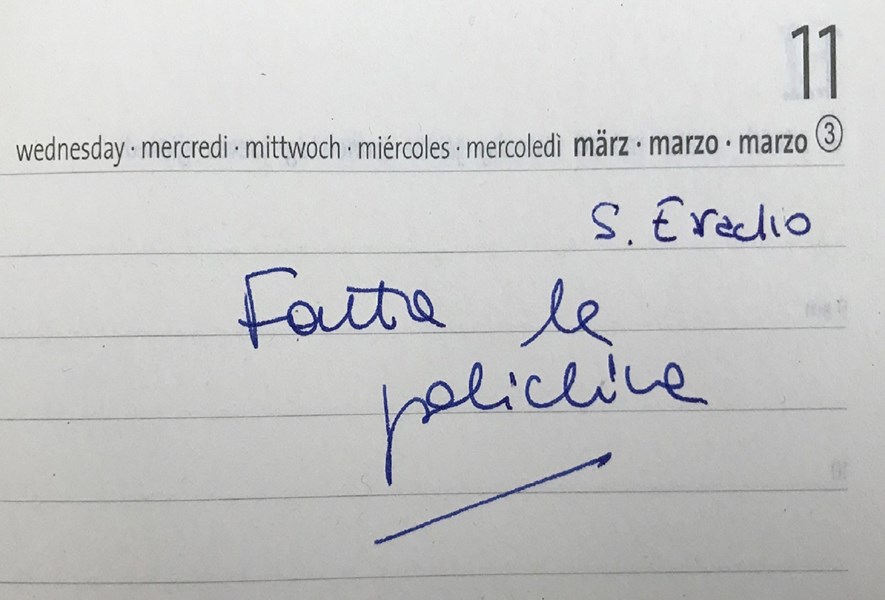 11
wednesday · mercredi · mittwoch · miércoles · mercoledì märz · marzo · marzo 3
S. Eraclio
Fatta la